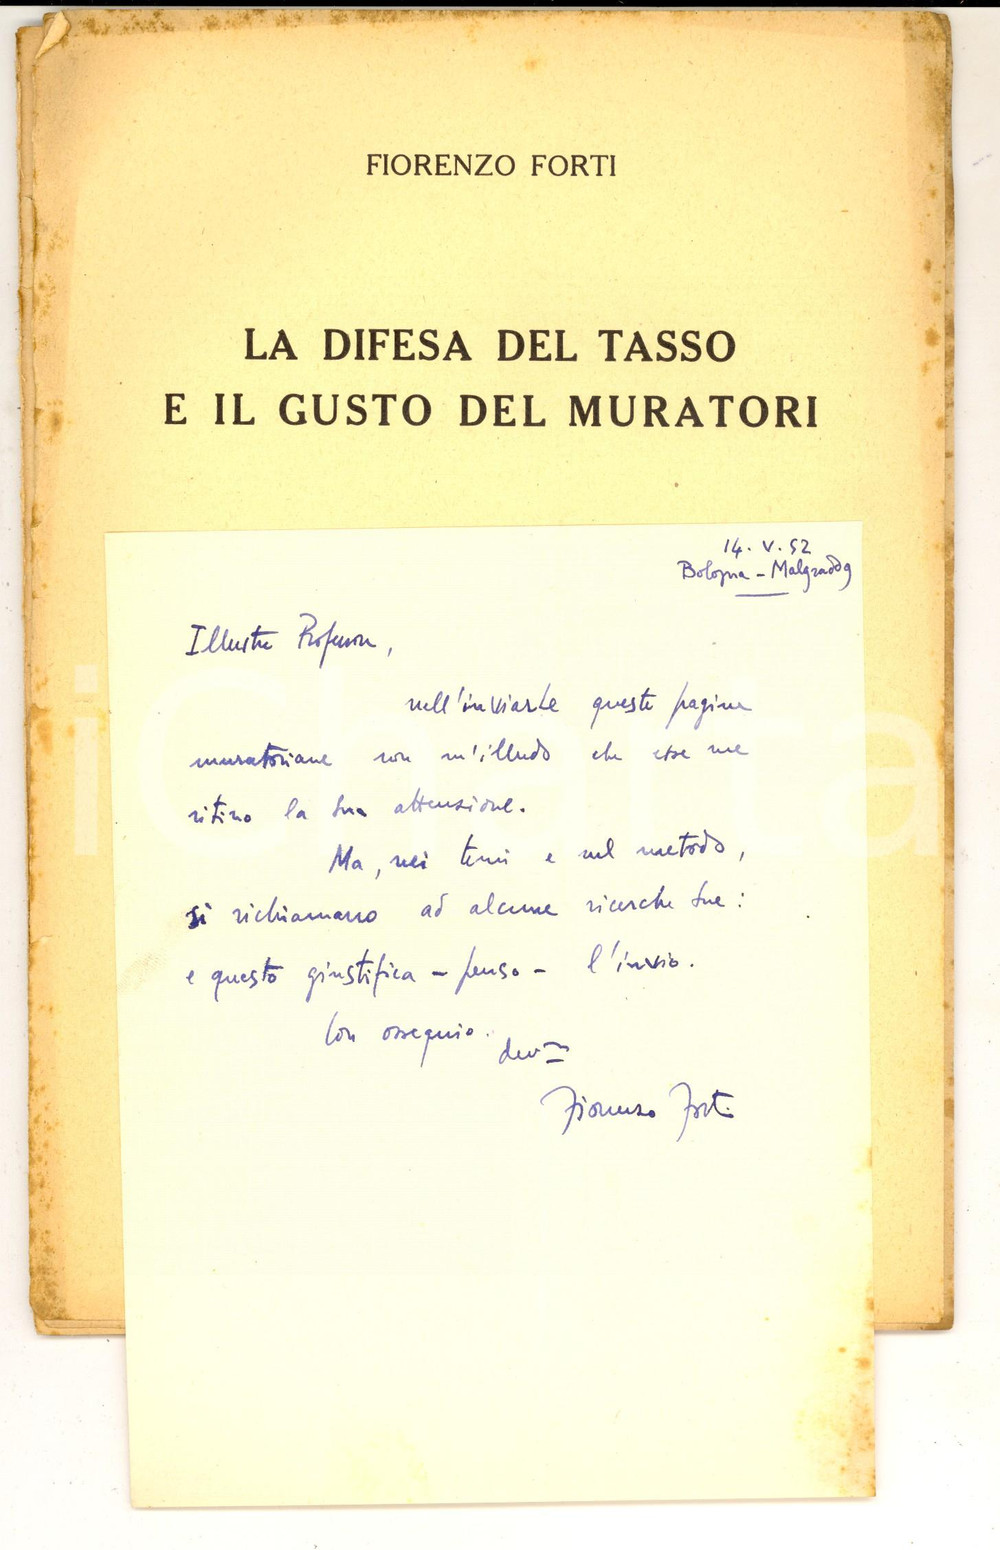 FIORENZO FORTI
LA DIFESA DEL TASSO
E IL GUSTO DEL MURATORI
14. V. 52
Bologna - Malgrado 9
Illustre Professore,
nell'inviarLe queste pagine
muratoriane non m'illudo che esse me
ritino la Sua attenzione.
Ma, nei temi e nel metodo,
si richiamano ad alcune ricerche Sue:
e questo giustifica - penso - l'invio.
Con ossequio.
dev.mo
Fiorenzo Forti
iCharta